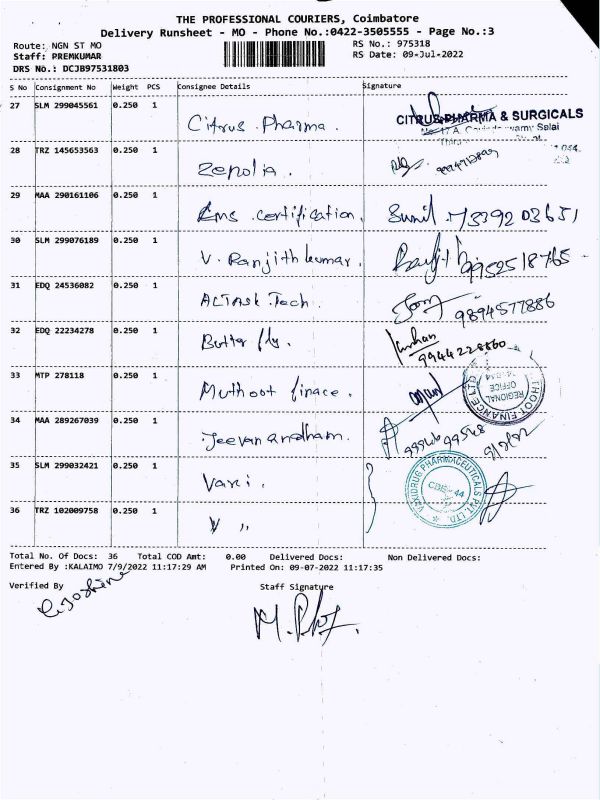 THE PROFESSIONAL COURIERS, Coimbatore
Delivery Runsheet - MO - Phone No.:0422-3505555 - Page No.:3
Route: NGN ST MO RS No.: 975318
Staff: PREMKUMAR RS Date: 09-Jul-2022
DRS No.: DCJB97531803
S No Consignment No Weight PCS Consignee Details Signature
27 SLM 299045561 0.250 1 Citrus Pharma. CITRUS PHARMA & SURGICALS
28 TRZ 145653563 0.250 1 Zenolia.
29 MAA 290161106 0.250 1 Ems certification. Sunil 7339203651
30 SLM 299076189 0.250 1 V. Ranjithkumar. Ranjith 9952518765
31 EDQ 24536082 0.250 1 ALTASK Tech. 9894577886
32 EDQ 22234278 0.250 1 Butter fly. 9944228860
33 MTP 278118 0.250 1 Muthoot finace. THOOT FINANCE LTD REGIONAL OFFICE
34 MAA 289267039 0.250 1 Jeevanandham.
35 SLM 299032421 0.250 1 Vaxi. VAXIDRUG PHARMACEUTICALS PVT. LTD. CBE - 44
36 TRZ 102009758 0.250 1 V "
Total No. Of Docs: 36 Total COD Amt: 0.00 Delivered Docs: Non Delivered Docs:
Entered By :KALAIMO 7/9/2022 11:17:29 AM Printed On: 09-07-2022 11:17:35
Verified By Staff Signature